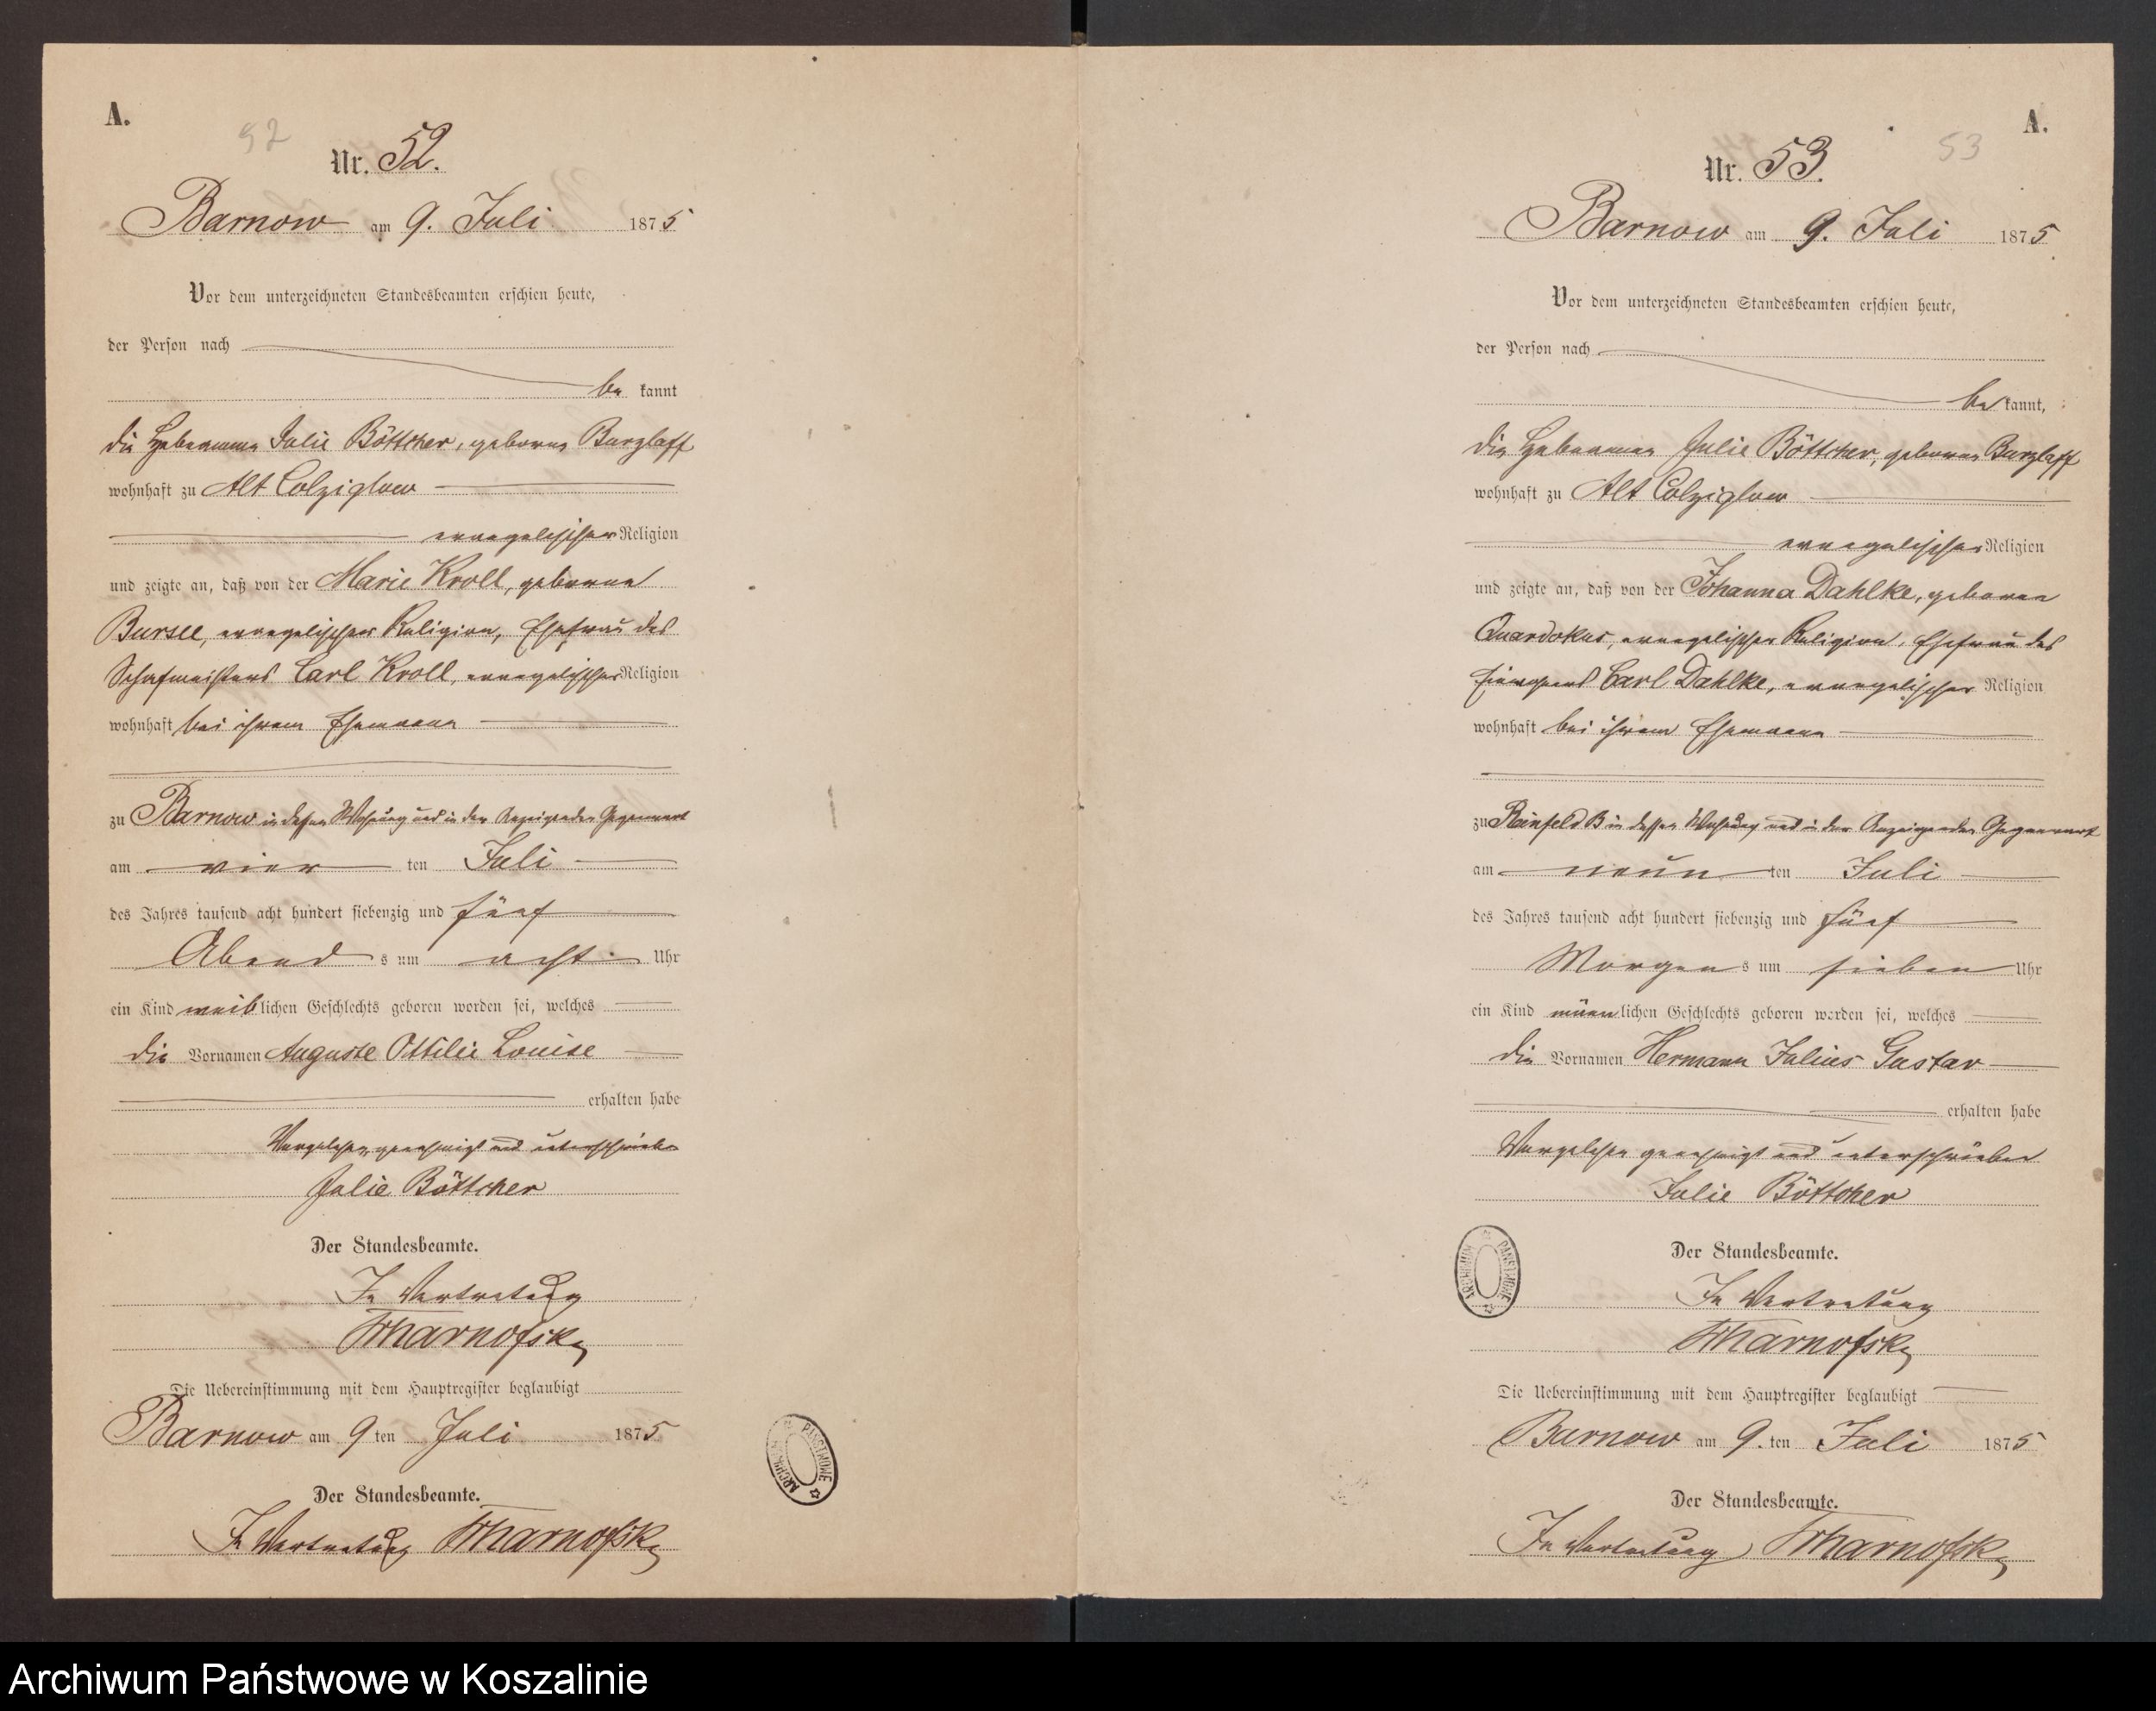 A.
52
Nr. 52.
Barnow am 9. Juli 1875
Vor dem unterzeichneten Standesbeamten erschien heute,
der Person nach
be kannt
die Hebamme Julie Böttcher, geborene Burzlaff
wohnhaft zu Alt Colziglow
evangelischer Religion
und zeigte an, daß von der Marie Kroll, geborene
Bursee, evangelischer Religion, Ehefrau des
Schafmeisters Carl Kroll, evangelischer Religion
wohnhaft bei ihrem Ehemann
zu Barnow in dessen Wohnung und in der Anzeigenden Gegenwart
am vier ten Juli
des Jahres tausend acht hundert siebenzig und fünf
Abend s um acht Uhr
ein Kind weib lichen Geschlechts geboren worden sei, welches
die Vornamen Auguste Ottilie Louise
erhalten habe
Vorgelesen, genehmigt und unterschrieben
Julie Böttcher
Der Standesbeamte.
In Vertretung
Die Uebereinstimmung mit dem Hauptregister beglaubigt
Barnow am 9 ten Juli 1875
Der Standesbeamte.
In Vertretung
ARCHIWUM PAŃSTWOWE
A.
53
Nr. 53.
Barnow am 9. Juli 1875
Vor dem unterzeichneten Standesbeamten erschien heute,
der Person nach
be kannt,
die Hebamme Julie Böttcher, geborene Burzlaff
wohnhaft zu Alt Colziglow
evangelischer Religion
und zeigte an, daß von der Johanna Dahlke, geborene
Quardokus, evangelischer Religion, Ehefrau des
Carl Dahlke, evangelischer Religion
wohnhaft bei ihrem Ehemann
zu Reinfeld B in dessen Wohnung und in der Anzeigenden Gegenwart
am neun ten Juli
des Jahres tausend acht hundert siebenzig und fünf
Morgen s um sieben Uhr
ein Kind männ lichen Geschlechts geboren worden sei, welches
die Vornamen Hermann Julius Gustav
erhalten habe
Vorgelesen genehmigt und unterschrieben
Julie Böttcher
Der Standesbeamte.
In Vertretung
ARCHIWUM PAŃSTWOWE
Die Uebereinstimmung mit dem Hauptregister beglaubigt
Barnow am 9. ten Juli 1875
Der Standesbeamte.
In Vertretung
Archiwum Państwowe w Koszalinie